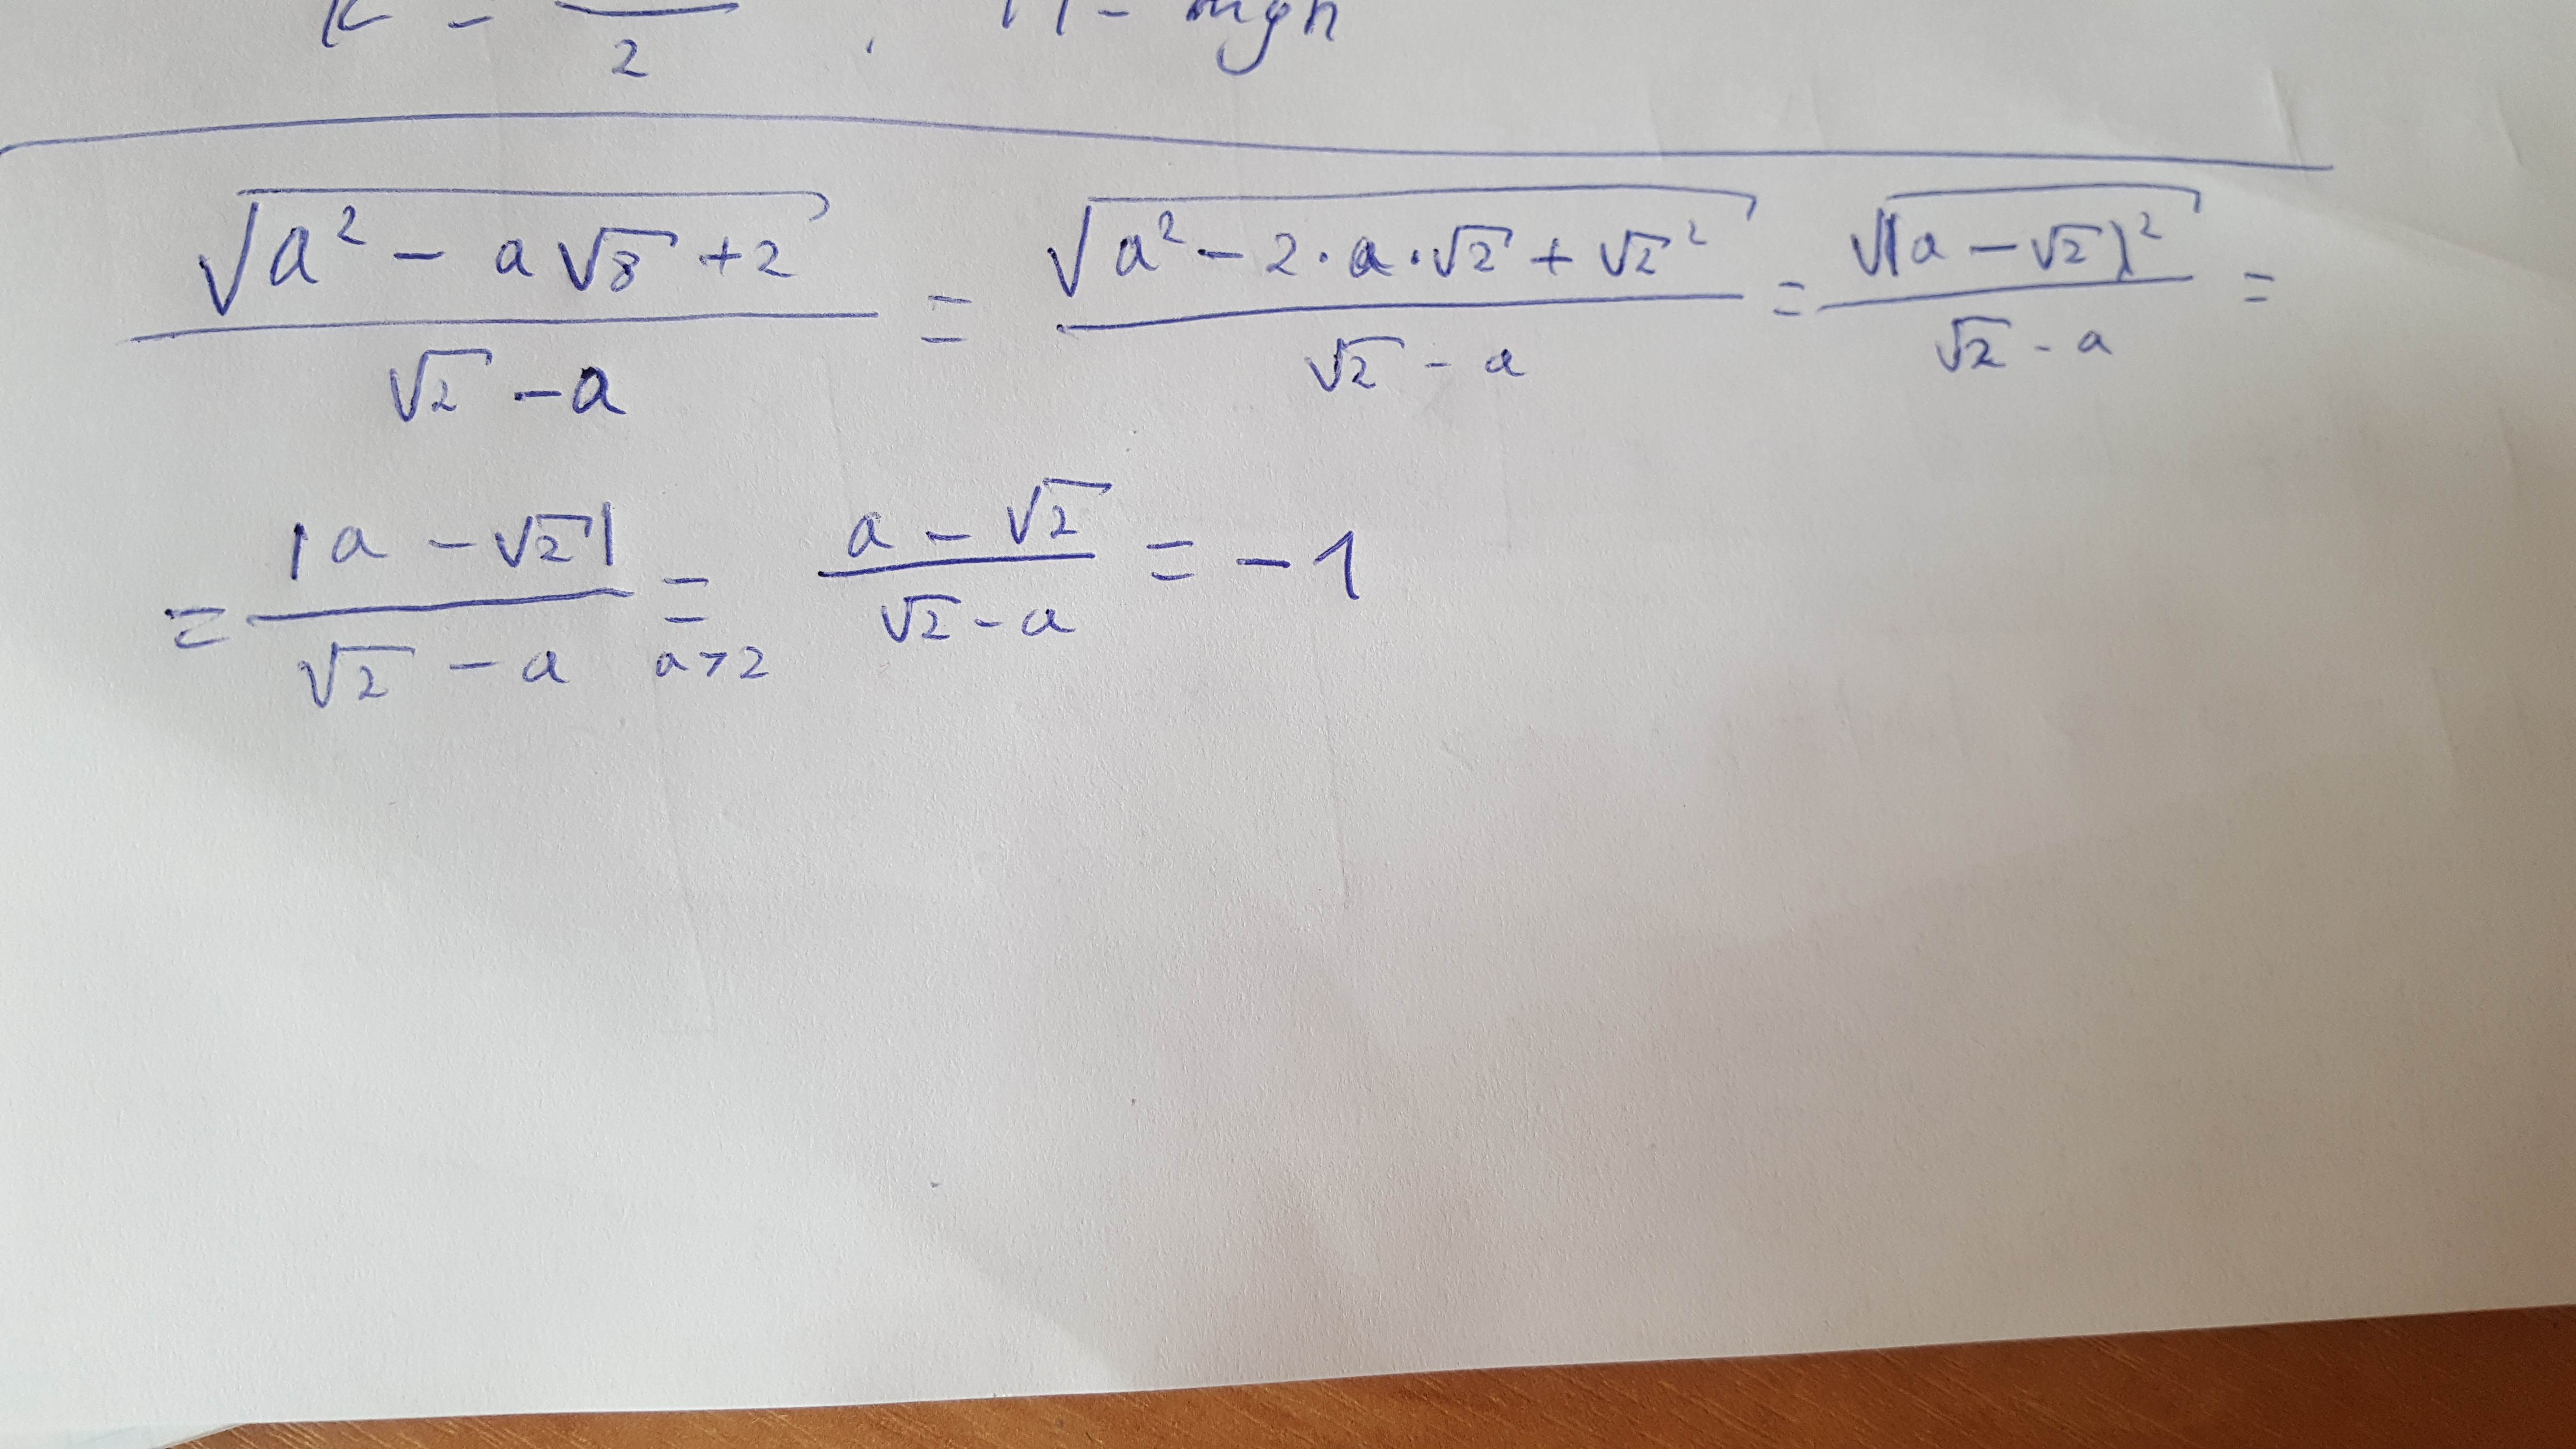 2 , = mgh
√(a² - a√8 + 2) / (√2 - a) = √(a² - 2·a·√2 + √2²) / (√2 - a) = √((a - √2)²) / (√2 - a) =
= |a - √2| / (√2 - a) = a>2 (a - √2) / (√2 - a) = -1